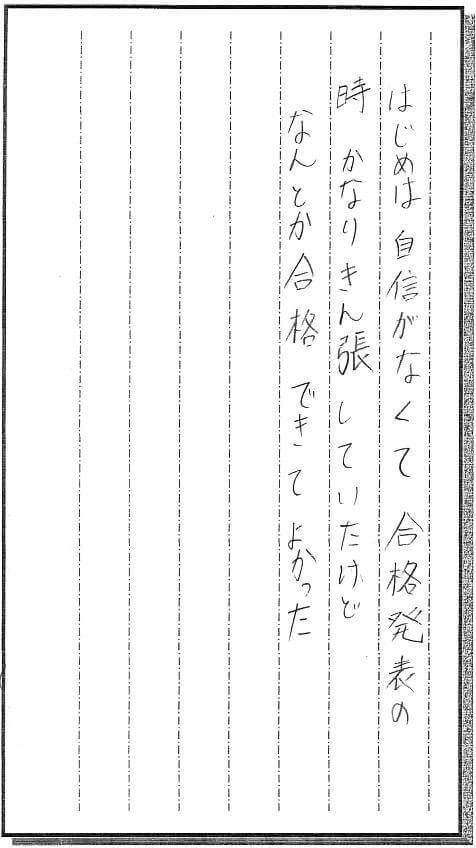 はじめは自信がなくて合格発表の
時かなりきん張していたけど
なんとか合格できてよかった